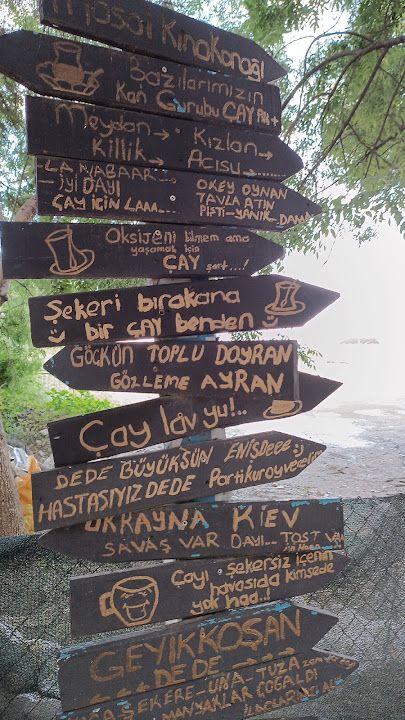 Masal Kınakonağı
Bazılarımızın
Kan Gurubu ÇAY Ph+
Meydan→ Kızlan→
Killik→ Acısu....→
LA NABAAR...
iyi DAYI
ÇAY için LAAA...
OKEY OYNAN
TAVLA ATIN
PİŞTİ-YANIK-DAMA
Oksijeni bilmem ama
yaşamak için
ÇAY şart...!
Şekeri bırakana
bir ÇAY benden
GÖÇKÜN TOPLU DOYRAN
GÖZLEME AYRAN
Çay lav yu!..
DEDE BÜYÜKSÜN ENİŞDEEE
HASTASIYIZ DEDE Parti kuroy verelim
UKRAYNA KIEV
SAVAŞ VAR DAYI... TOST
Çayı şekersiz içenin
havasıda kimsede
yok haa..!
GEYİKKOŞAN
DEDE
ŞEKERE-UNA-TUZA
MANYAKLAR ÇOĞALDI